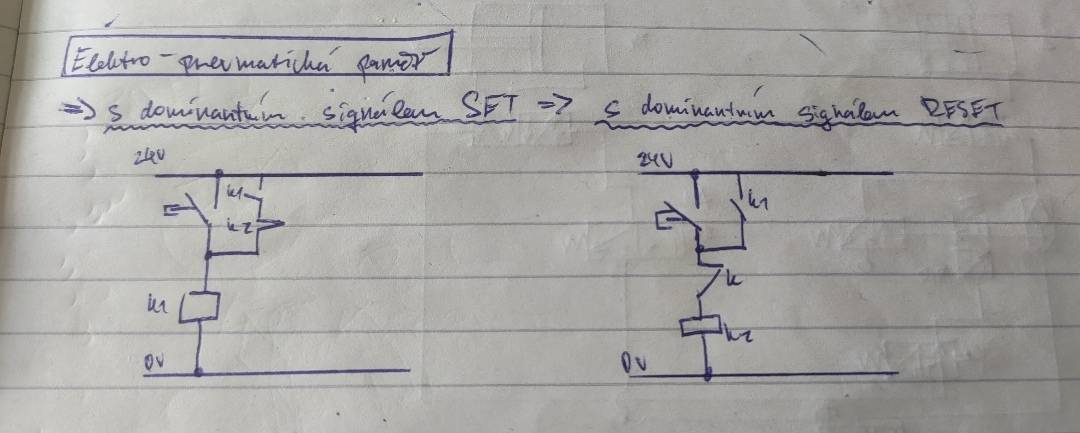 Elektro-pneumatická paměť
=> s dominantním signálem SET => s dominantním signálem RESET
24V 24V
k1 k1
k2
k
k1
k2
0V 0V